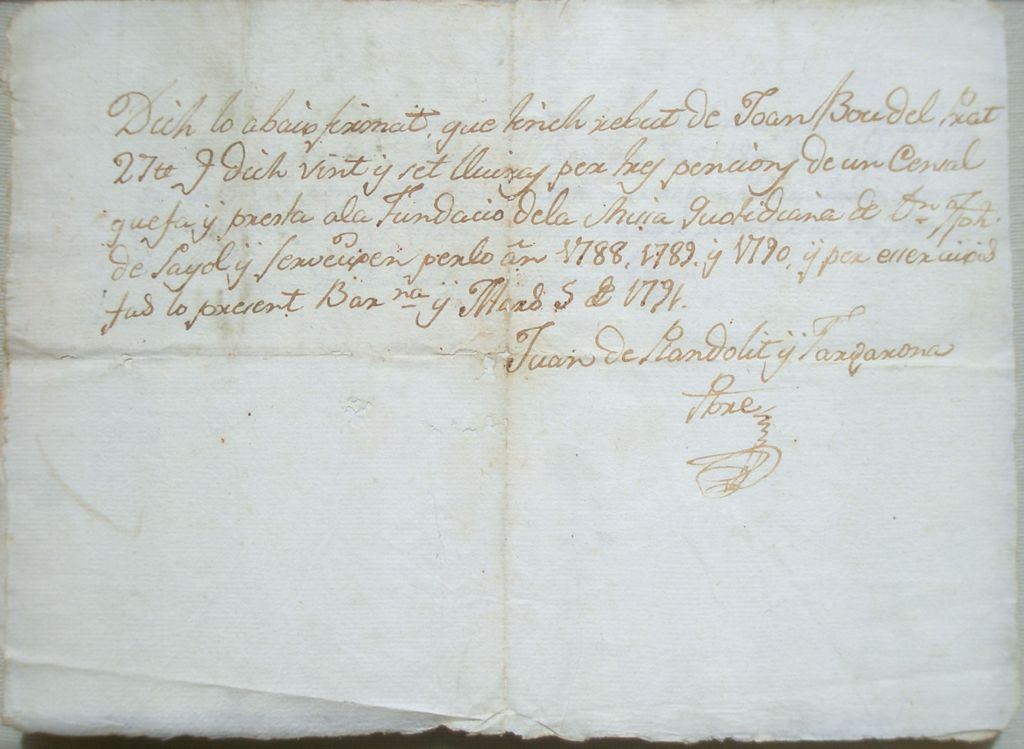 Dich lo abaix firmat, que tinch rebut de Joan Bou del Prat
27tt Dich vint y set lliuras per tres pencions de un Censal
que fa y presta ala Fundacio dela Missa Quotidiana de Dn Jph.
de Sayol y perlo añ 1788, 1789. y 1790, y per esser
fas lo present Barna y Mars 5 de 1791.
Juan de y Tarzarona
Pbre